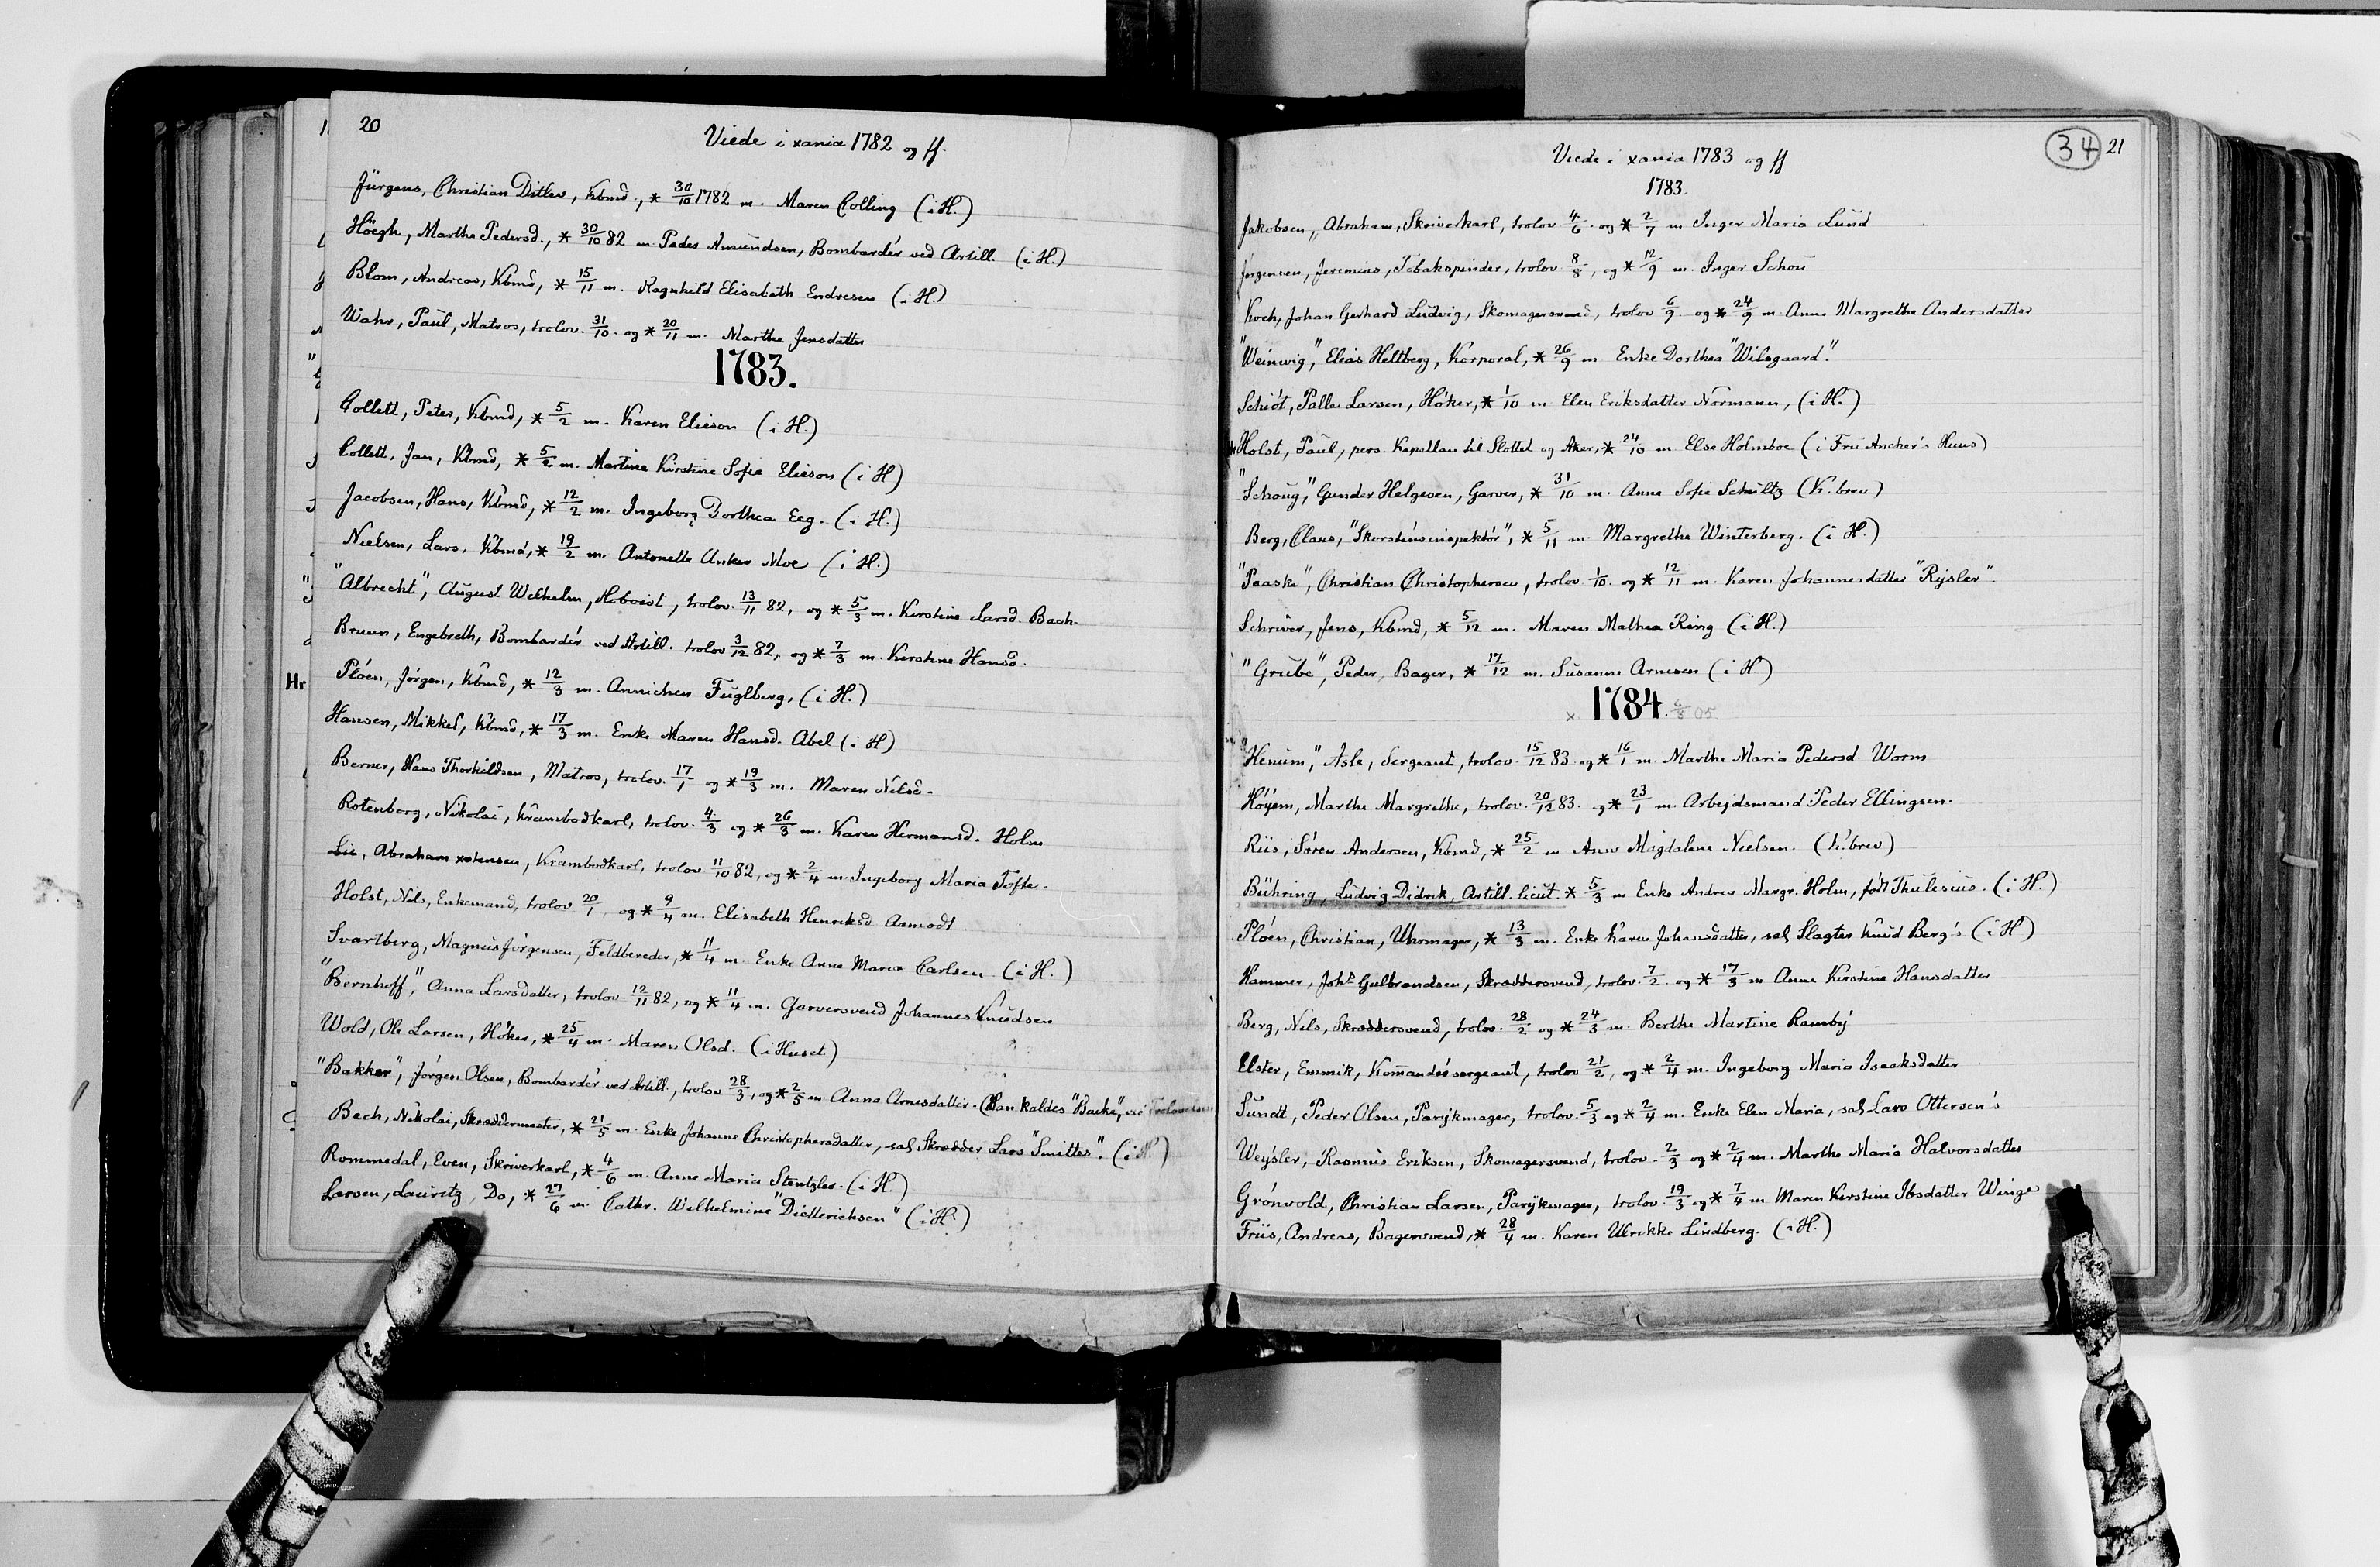 20
Viede i xania 1782 og ff.
Jürgens, Christian Ditlev, Kbmd., * 30/10 1782 m. Maren Colling (i H.)
Höegh, Marthe Pedersd., * 30/10 82 m. Peder Amundsen, Bombardér ved Artill. (i H.)
Blom, Andreas, Kbmd, * 15/11 m. Ragnhild Elisabeth Endresen (i H.)
Wahr, Paul, Matros, trolov. 31/10 og * 20/11 m. Marthe Jensdatter
1783.
Collett, Peter, Kbmd, * 5/2 m. Karen Elieson (i H.)
Collett, Jan, Kbmd, * 5/2 m. Martine Kirstine Sofie Elieson (i H)
Jacobsen, Hans, Kbmd, * 12/2 m. Ingeborg Dorthea Eeg. (i H.)
Nielsen, Lars, Kbmd, * 19/2 m. Antonette Anker Moe (i H.)
"Albrecht", August Welhelm, Hoboist, trolov. 13/11 82, og * 5/3 m. Kirstine Larsd. Bach.
Bruun, Engebreth, Bombardér ved Artill. trolov 3/12 82, og * 7/3 m. Kirstine Hansd.
Hr
Plöen, Jørgen, Kbmd, * 12/3 m. Annichen Fuglberg. (i H.)
Hansen, Mikkel, Kbmd, * 17/3 m. Enke Maren Hansd. Abel (i H)
Berner, Hans Thorkildsen, Matros, trolov. 17/1 og * 19/3 m. Maren Nilsd.
Rotenborg, Nikolai, Krambodkarl, trolov. 4/3 og * 26/3 m. Karen Hermansd. Holm
Lie, Abraham xstensen, Krambodkarl, trolov 11/10 82, og * 2/4 m. Ingeborg Maria Tofte.
Holst, Nils, Enkemand, trolov 20/1, og * 9/4 m. Elisabeth Henriksd Aamodt
Svartberg, Magnus Jørgensen, Feldbereder, * 11/4 m. Enke Anne Maria Carlsen (i H.)
"Bernhoff", Anna Larsdatter, trolov. 12/11 82, og * 11/4 m. Garversvend Johannes Knudsen
Wold, Ole Larsen, Höker, * 25/4 m. Maren Olsd. (i Huset)
"Bakker", Jørgen Olsen, Bombardér ved Artill., trolov 28/3, og * 2/5 m. Anna Arnesdatter. (Han kaldes "Backe", ved Trolovelsen
Bech, Nikolai, Skræddermester, * 21/5 m. Enke Johanne Christophersdatter, sal Skrædder Lars "Smittes". (i H)
Rommedal, Even, Skriverkarl, * 4/6 m. Anne Maria Stentzler. (i H.)
Larsen, Lauritz, Do, * 27/6 m. Cathr. Wilhelmine "Dietterichsen" (i H.)
34
21
Viede i xania 1783 og ff
1783.
Jakobsen, Abraham, Skriverkarl, trolov 4/6 og * 2/7 m Inger Maria Lund
Jørgensen, Jeremias, Tobakspinder, trolov 8/8, og * 12/9 m. Inger Schou
Koch, Johan Gerhard Ludvig, Skomagersvend, trolov 6/9 og * 24/9 m Anne Margrethe Andersdatter
"Weinwig", Elias Heltberg, Korporal, * 26/9 m Enke Dorthea "Wilsgaard".
Schiöt, Palle Larsen, Höker, * 1/10 m Elen Eriksdatter Normann, (i H.)
Holst, Paul, pers. Kapellan til Slottet og Aker, * 24/10 m Else Holmboe (i Fru Ancher's Huus)
"Schoug", Gunder Helgesen, Garver, * 31/10 m. Anne Sofie Schultz (K. brev)
Berg, Claus, "Skorstensinspektör", * 5/11 m Margrethe Winterberg. (i H.)
"Paaske", Christian Christophersen, trolov. 1/10. og * 12/11 m. Karen Johannesdatter "Rysler".
Schriver, Jens, Kbmd, * 5/12 m. Maren Mathea Ring (i H.)
"Grube", Peder, Bager, * 17/12 m. Susanne Arnesen (i H)
1784.
"Henum", Asle, Sergeant, trolov. 15/12 83 og * 16/1 m. Marthe Maria Pedersd Worm
Höyem, Marthe Margrethe, trolov. 20/12 83. og * 23/1 m. Arbejdsmand Peder Ellingsen.
Riis, Sören Andersen, Kbmd, * 25/2 m Anne Magdalene Nielsen. (K. brev)
Bühring, Ludvig Didrik, Artill. lieut. * 5/3 m Enke Andrea Margr. Holm, född Thulesius. (i H.)
Plöen, Christian, Uhrmager, * 13/3 m. Enke Karen Johansdatter, sal Slagter Knud Berg's (i H)
Hammer, Johs Gulbrandsen, Skræddersvend, trolov. 7/2 og * 17/3 m Anne Kirstine Hansdatter
Berg, Nils, Skræddersvend, trolov. 28/2 og * 24/3 m. Berthe Martine Ramby
Elster, Emmik, Komandérsergeant, trolov 21/2, og * 2/4 m. Ingeborg Maria Isaksdatter
Sundt, Peder Olsen, Parykmager, trolov. 5/3 og * 2/4 m. Enke Elen Maria, sal Lars Ottersen's
Weysler, Rasmus Eriksen, Skomagersvend, trolov. 2/3 og * 2/4 m. Marthe Maria Halvorsdatter
Grönvold, Christian Larsen, Parykmager, trolov. 19/3 og * 7/4 m Maren Kirstine Ibsdatter Winge
Friis, Andreas, Bagersvend, * 28/4 m. Karen Ulrikke Lindberg. (i H.)